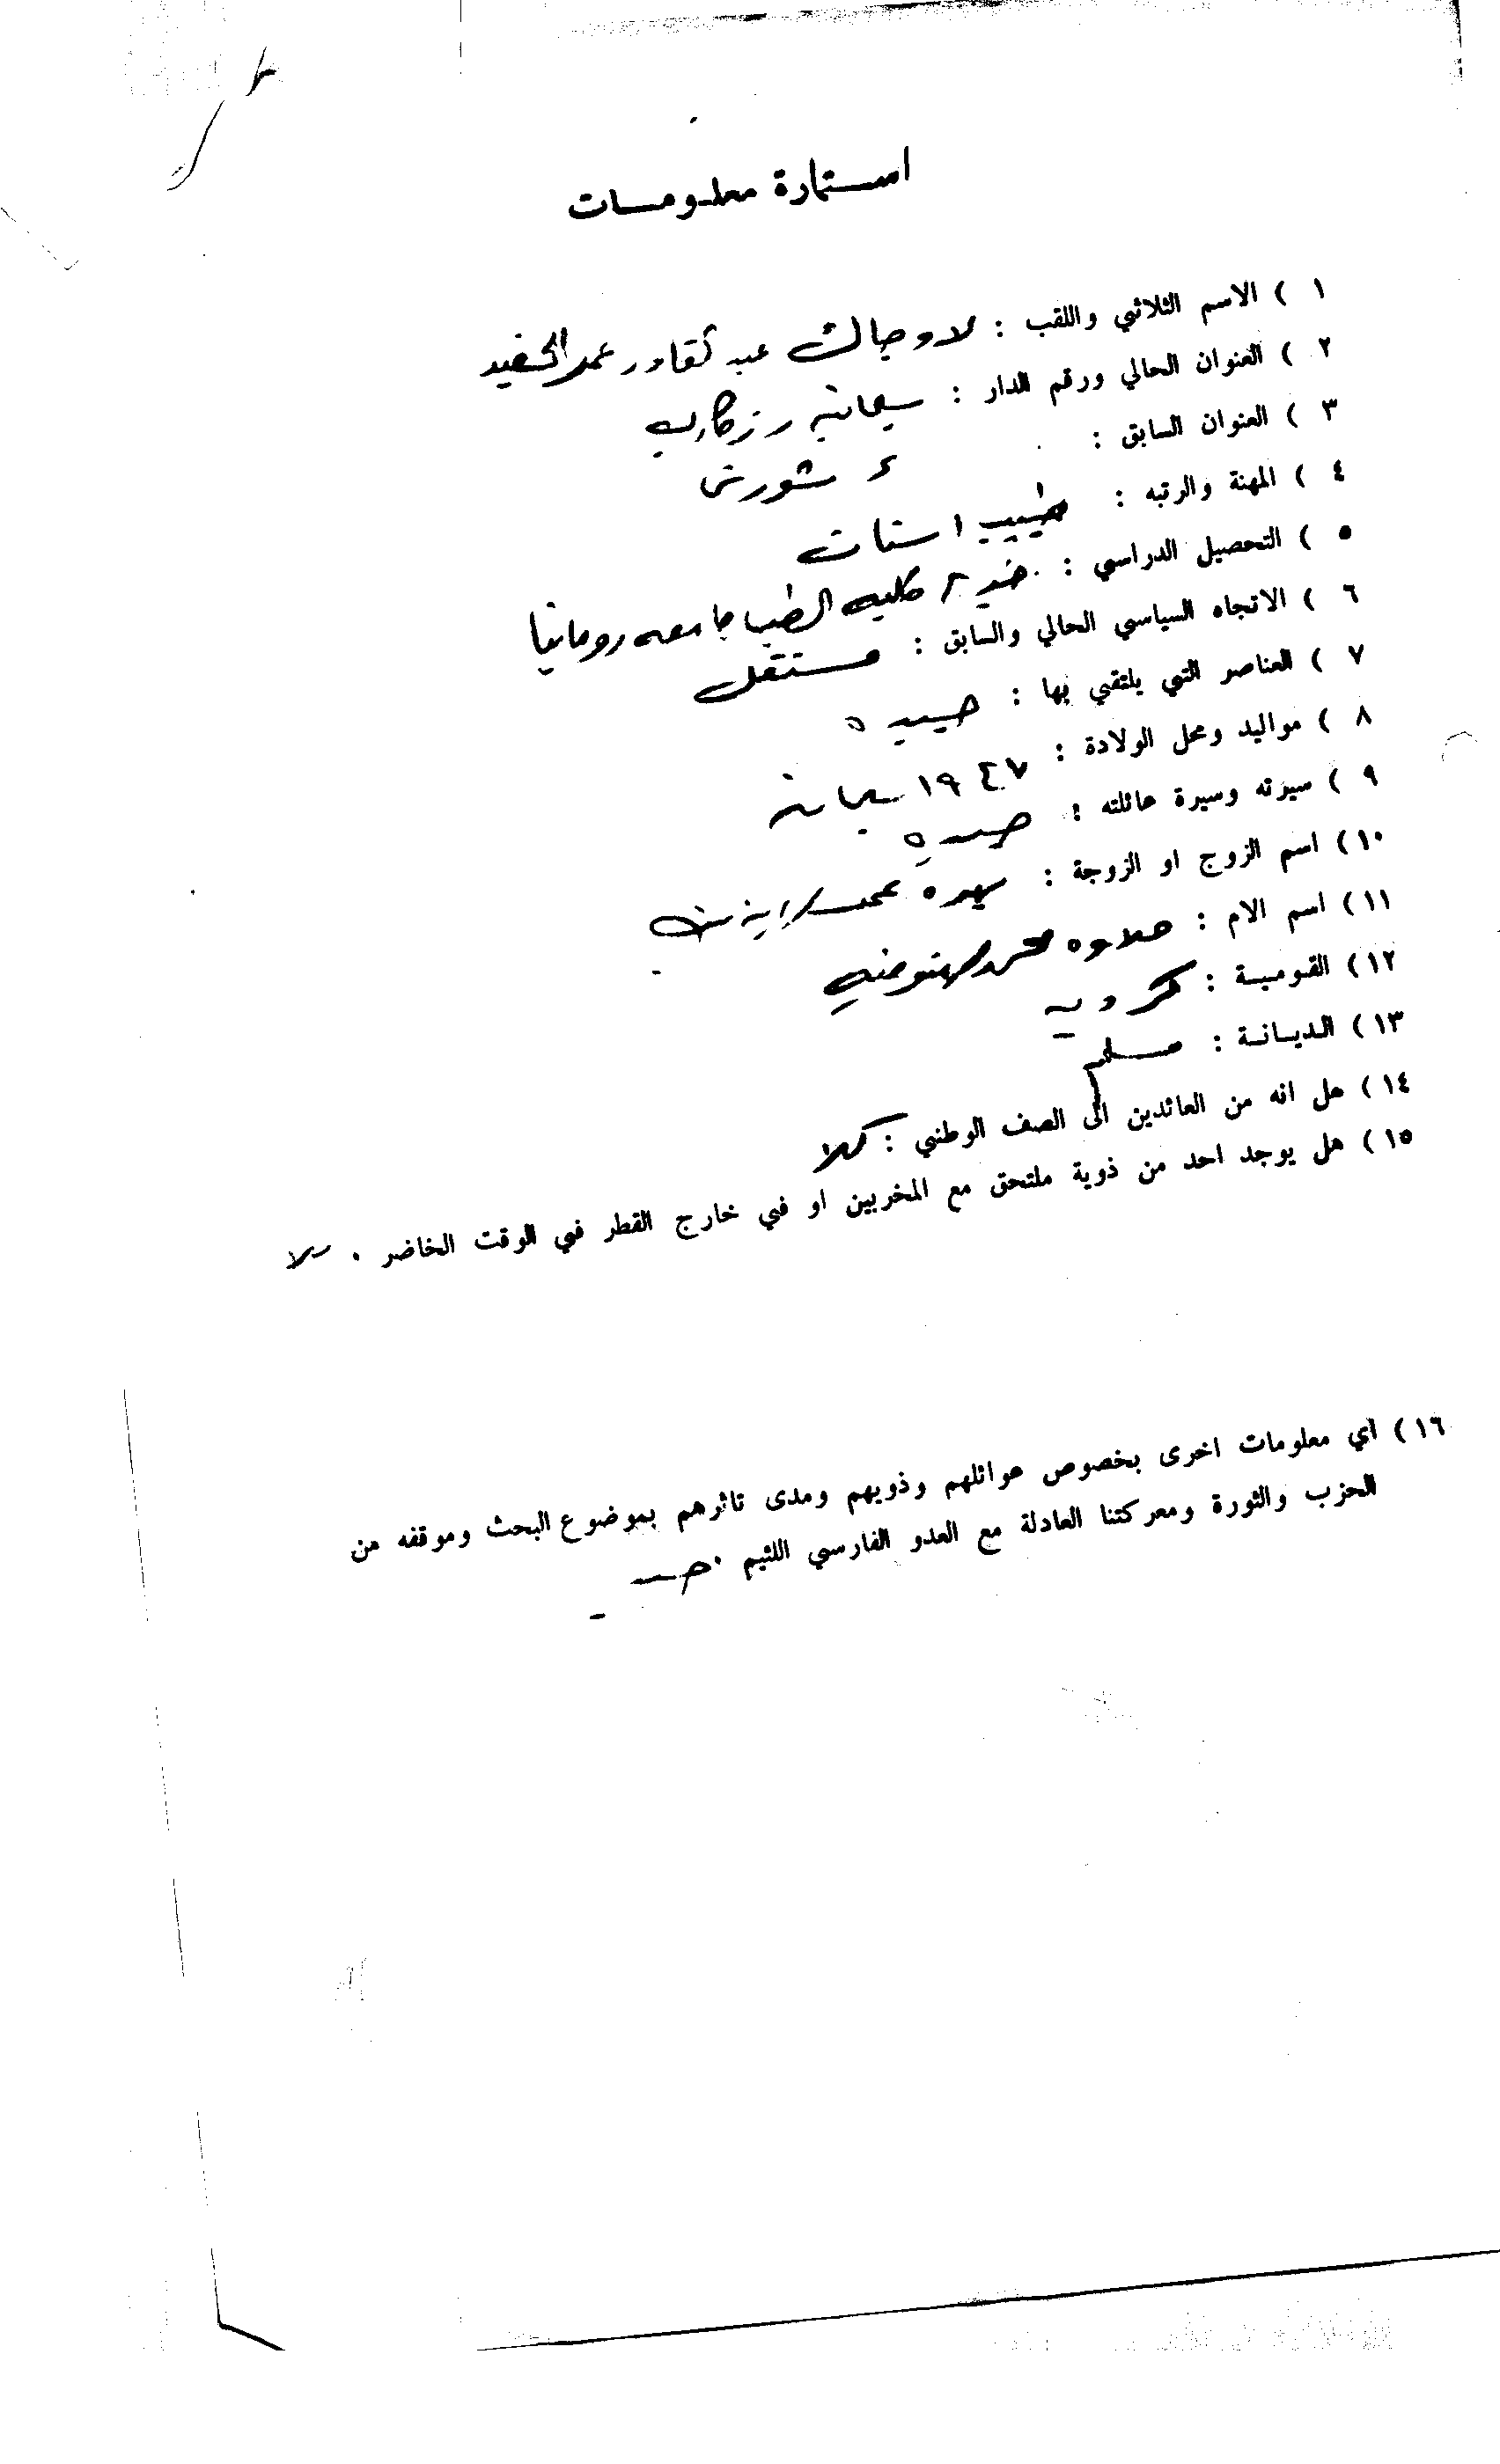 استمارة معلومات
١ ) الاسم الثلاثي واللقب : عبد القادر الحفيد
٢ ) العنوان الحالي ورقم الدار : رزكاري
٣ ) العنوان السابق : شورش
٤ ) المهنة والرتبه : طبيب اسنان
٥ ) التحصيل الدراسي : خريج كليه الطب جامعه رومانيا
٦ ) الاتجاه السياسي الحالي والسابق : مستقل
٧ ) العناصر التي يلتقي بها : جيده
٨ ) مواليد ومحل الولادة : ١٩٤٧
٩ ) سيرته وسيرة عائلته : جيده
١٠) اسم الزوج او الزوجة :
١١) اسم الام :
١٢) القومية : كردي
١٣) الديانة : مسلم
١٤) هل انه من العائدين الى الصف الوطني : كلا
١٥) هل يوجد احد من ذوية ملتحق مع المخربين او في خارج القطر في الوقت الحاضر . كلا
١٦) اي معلومات اخرى بخصوص عوائلهم وذويهم ومدى تاثرهم بموضوع البحث وموقفه من
الحزب والثورة ومعركتنا العادلة مع العدو الفارسي اللئيم . جيد